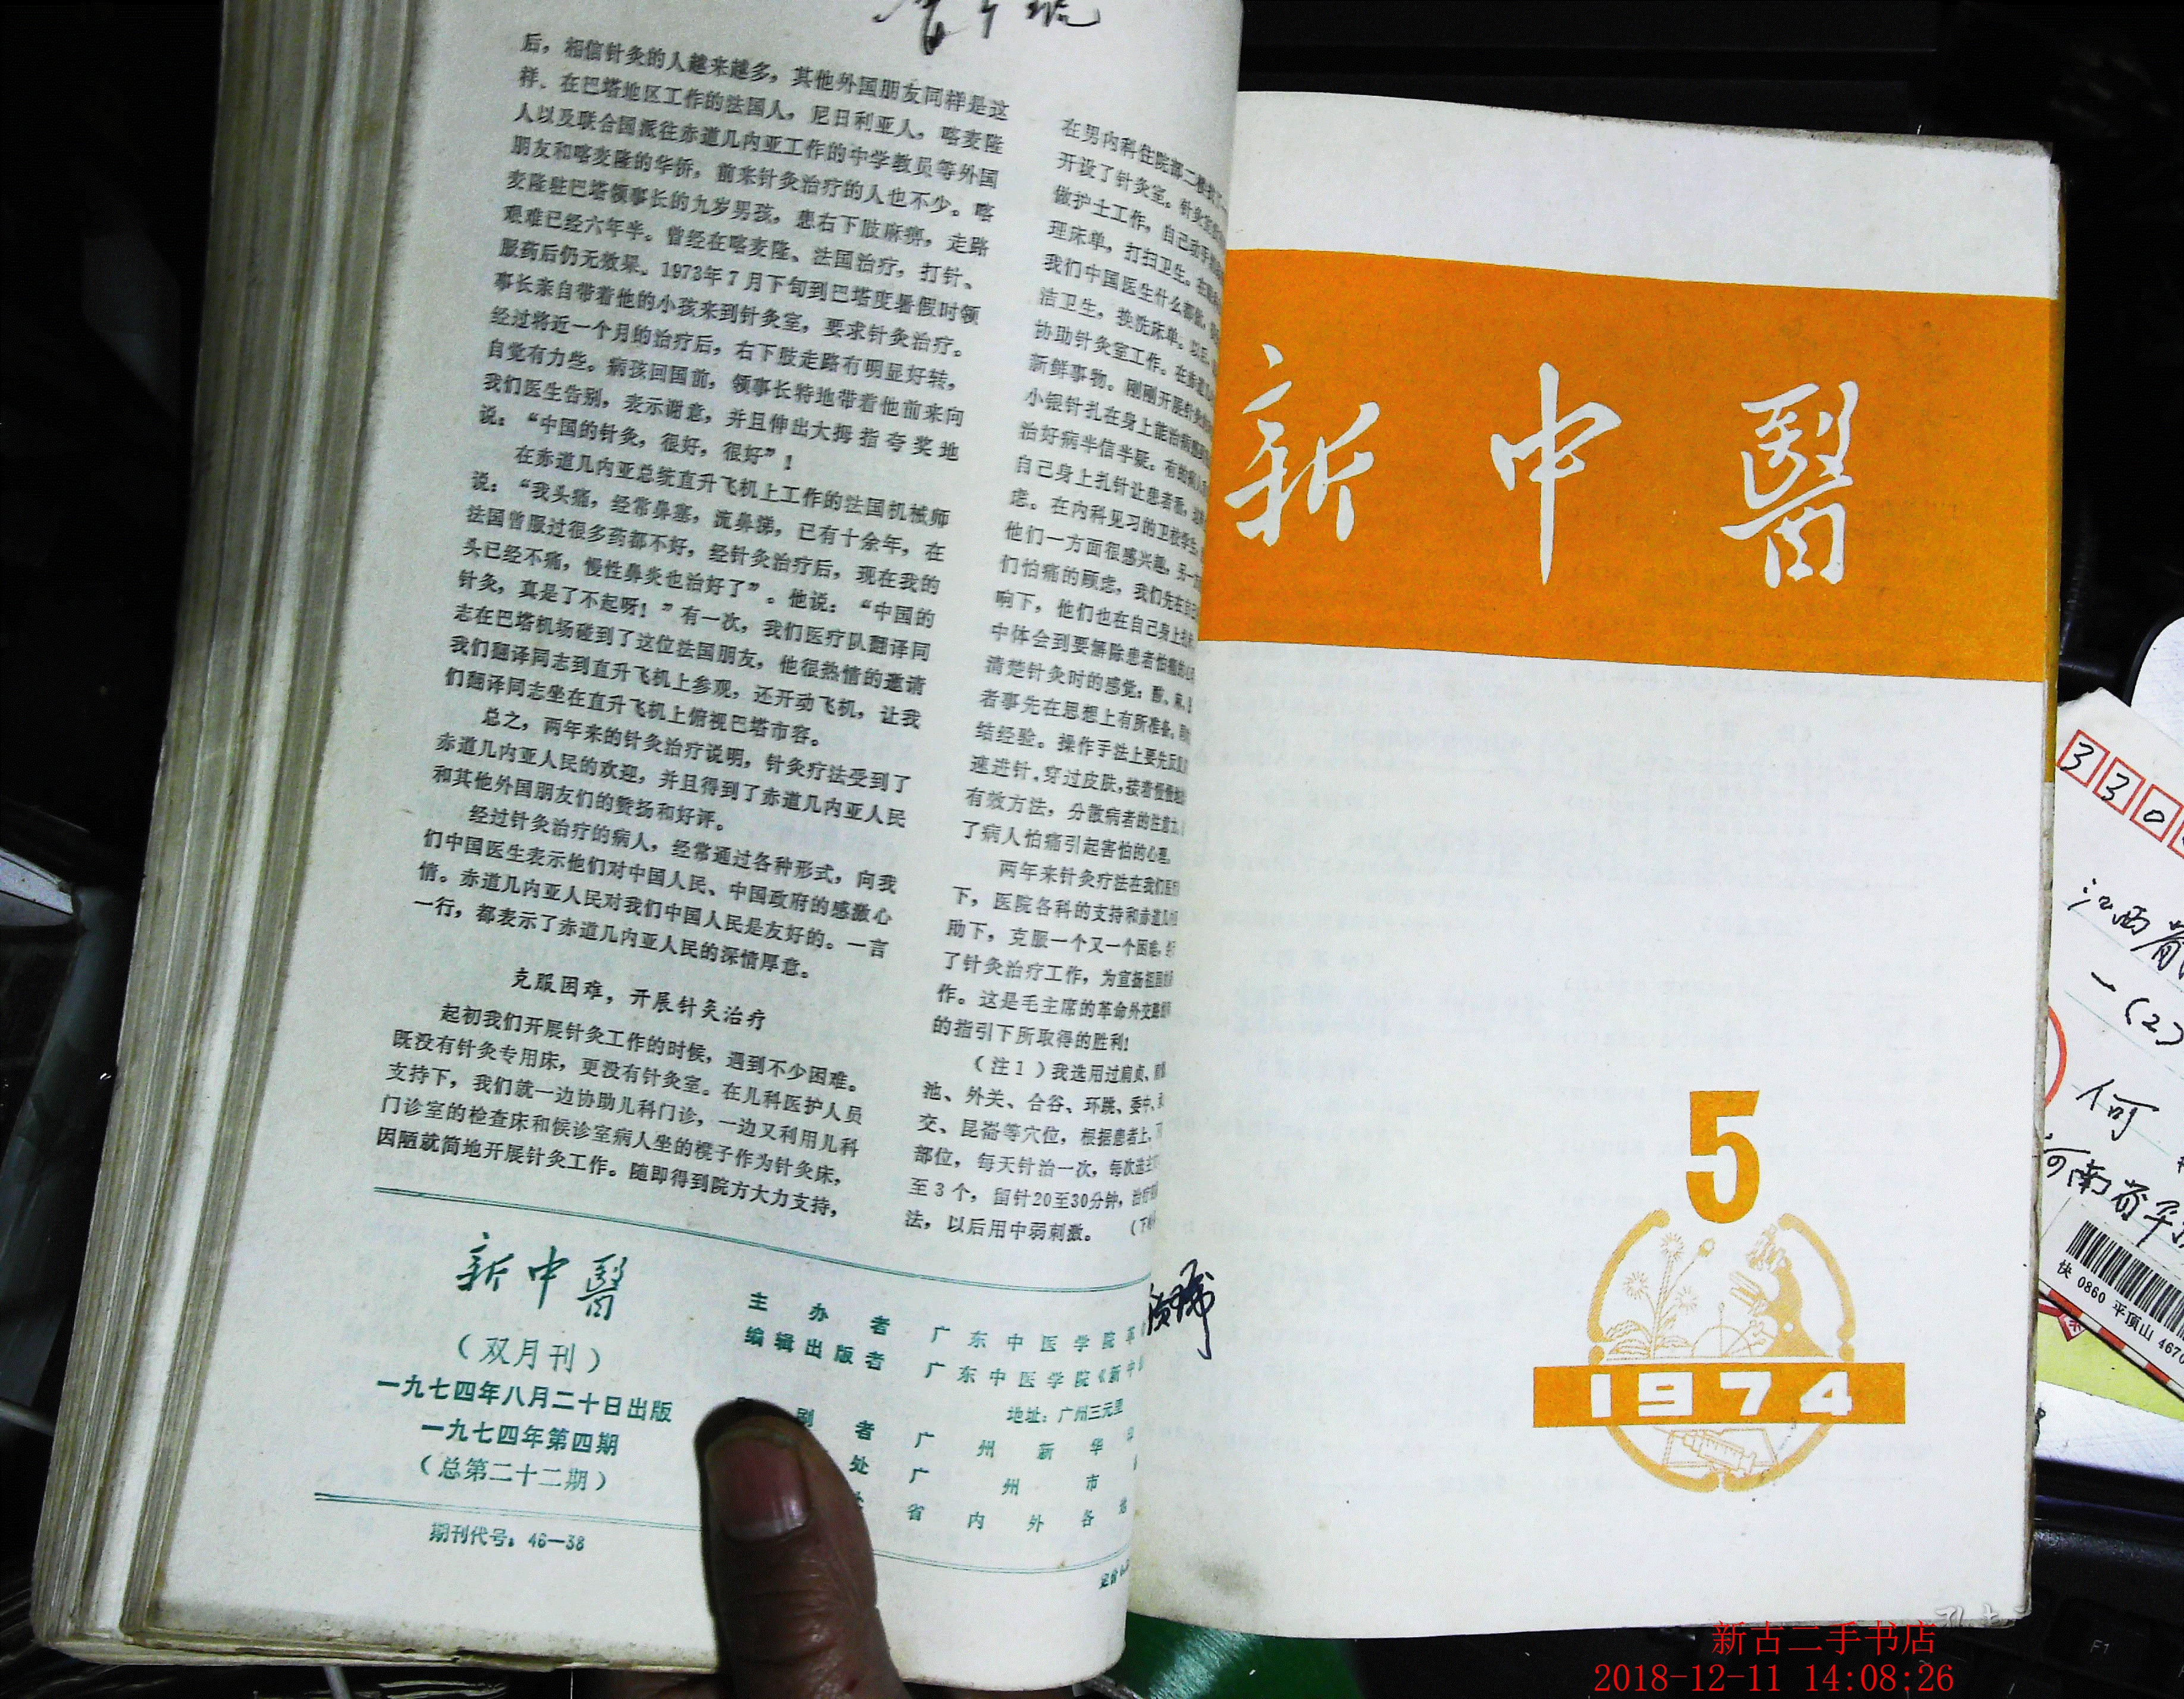 后，相信针灸的人越来越多，其他外国朋友同样是这
样．在巴塔地区工作的法国人，尼日利亚人，喀麦隆
人以及联合国派往赤道几内亚工作的中学教员等外国
朋友和喀麦隆的华侨，前来针灸治疗的人也不少。喀
麦隆驻巴塔领事长的九岁男孩，患右下肢麻痹，走路
艰难已经六年半。曾经在喀麦隆、法国治疗，打针、
服药后仍无效果。1973年7月下旬到巴塔度暑假时领
事长亲自带着他的小孩来到针灸室，要求针灸治疗。
经过将近一个月的治疗后，右下肢走路有明显好转，
自觉有力些。病孩回国前，领事长特地带着他前来向
我们医生告别，表示谢意，并且伸出大拇指夸奖地
说：“中国的针灸，很好，很好”！
在赤道几内亚总统直升飞机上工作的法国机械师
说：“我头痛，经常鼻塞，流鼻涕，已有十余年，在
法国曾服过很多药都不好，经针灸治疗后，现在我的
头已经不痛，慢性鼻炎也治好了”。他说：“中国的
针灸，真是了不起呀！”有一次，我们医疗队翻译同
志在巴塔机场碰到了这位法国朋友，他很热情的邀请
我们翻译同志到直升飞机上参观，还开动飞机，让我
们翻译同志坐在直升飞机上俯视巴塔市容。
总之，两年来的针灸治疗说明，针灸疗法受到了
赤道几内亚人民的欢迎，并且得到了赤道几内亚人民
和其他外国朋友们的赞扬和好评。
经过针灸治疗的病人，经常通过各种形式，向我
们中国医生表示他们对中国人民、中国政府的感激心
情。赤道几内亚人民对我们中国人民是友好的。一言
一行，都表示了赤道几内亚人民的深情厚意。
克服困难，开展针灸治疗
起初我们开展针灸工作的时候，遇到不少困难。
既没有针灸专用床，更没有针灸室。在儿科医护人员
支持下，我们就一边协助儿科门诊，一边又利用儿科
门诊室的检查床和候诊室病人坐的櫈子作为针灸床，
因陋就简地开展针灸工作。随即得到院方大力支持，
在男内科住院部二楼
开设了针灸室。针灸室
做护士工作，自己动手
理床单，打扫卫生。在
我们中国医生什么都做，
洁卫生，换洗床单。以至
协助针灸室工作。在赤道
新鲜事物。刚刚开展针灸
小银针扎在身上能治病
治好病半信半疑。有的病人
自己身上扎针让患者看，
虑。在内科见习的卫校学生，
他们一方面很感兴趣，另一方
们怕痛的顾虑，我们先在自己
响下，他们也在自己身上扎
中体会到要解除患者怕痛的
清楚针灸时的感觉：酸、麻、
者事先在思想上有所准备。
结经验。操作手法上要先
速进针，穿过皮肤，接着慢慢
有效方法，分散病者的注意力，
了病人怕痛引起害怕的心理。
两年来针灸疗法在我们医疗
下，医院各科的支持和赤道几
助下，克服一个又一个困难，
了针灸治疗工作，为宣扬祖国
作。这是毛主席的革命外交路线
的指引下所取得的胜利！
（注1）我选用过肩贞、
池、外关、合谷、环跳、委中、
交、昆崙等穴位，根据患者上、下
部位，每天针治一次，每次选主
至3个，留针20至30分钟，治疗
法，以后用中弱刺激。（下
新中醫
（双月刊）
一九七四年八月二十日出版
一九七四年第四期
（总第二十二期）
期刊代号：46—38
主办者 广东中医学院革
编辑出版者 广东中医学院《新中
地址：广州三元里
刷者 广州新华印
处 广州市
省内外各
定价
新中醫
5
1974
330
江西省
一(2)
何
河南省平
快 0860 平顶山 4670
F1
新古二手书店
2018-12-11 14:08:26